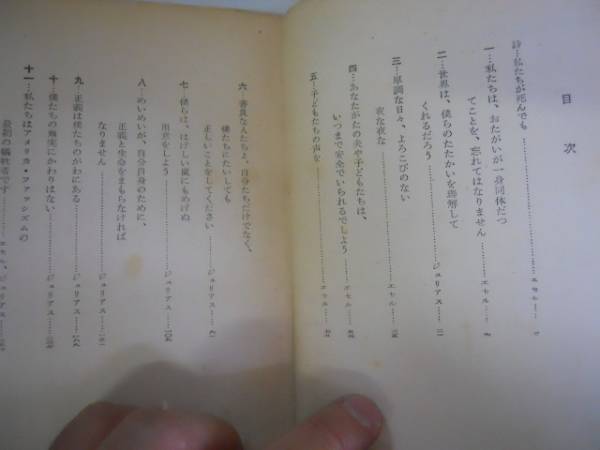 目次
詩…私たちが死んでも……エセル……
一…私たちは、おたがいが一身同体だつ
てことを、忘れてはなりません……エセル……
二…世界は、僕らのたたかいを理解して
くれるだろう……ジュリアス……
三…単調な日々、よろこびのない
夜な夜な……エセル……
四…あなたがたの夫や子どもたちは、
いつまで安全でいられるでしよう……エセル……
五…子どもたちの声を……エセル……
六…善良なんだちよ、自分たちだけでなく、
僕たちにたいしても
正しいことをしてください……ジュリアス……
七…僕らは、はげしい嵐にもめげぬ
勇気をしよう……ジュリアス……
八…めいめいが、自分自身のために、
正義と生命をまもらなければ
なりません……ジュリアス……
九…正義は僕たちのがわにある……ジュリアス……
十…僕たちの無実にかわりはない……ジュリアス……
十一…私たちはアメリカ・ファッシズムの
最初の犠牲者です……エセル、ジュリアス……